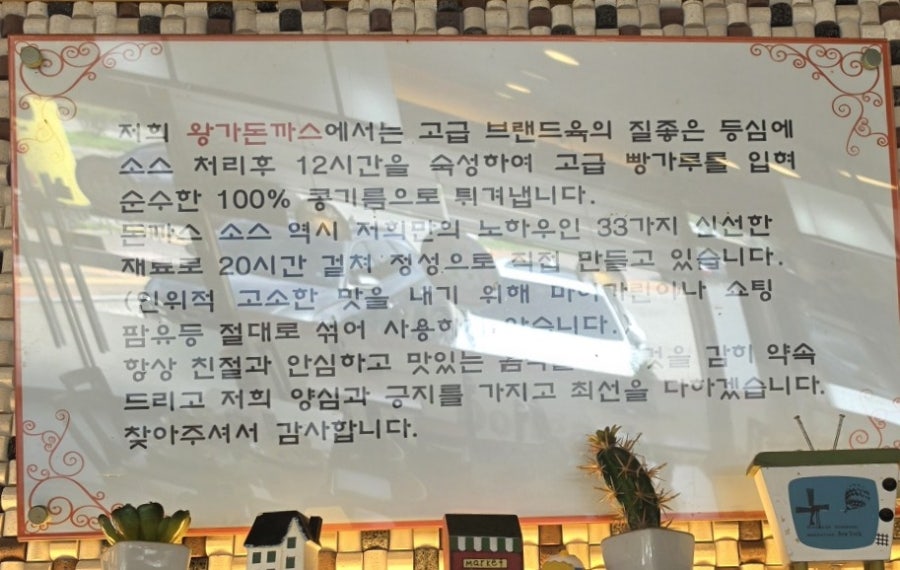 저희 왕가돈까스에서는 고급 브랜드육의 질좋은 등심에
소스 처리후 12시간을 숙성하여 고급 빵가루를 입혀
순수한 100% 콩기름으로 튀겨냅니다.
돈까스 소스 역시 저희만의 노하우인 33가지 신선한
재료로 20시간 걸쳐 정성으로 직접 만들고 있습니다.
(인위적 고소한 맛을 내기 위해 마아가린이나 쇼팅
팜유등 절대로 섞어 사용하지 않습니다.)
항상 친절과 안심하고 맛있는 것을 감히 약속
드리고 저희 양심과 긍지를 가지고 최선을 다하겠습니다.
찾아주셔서 감사합니다.
market
New York